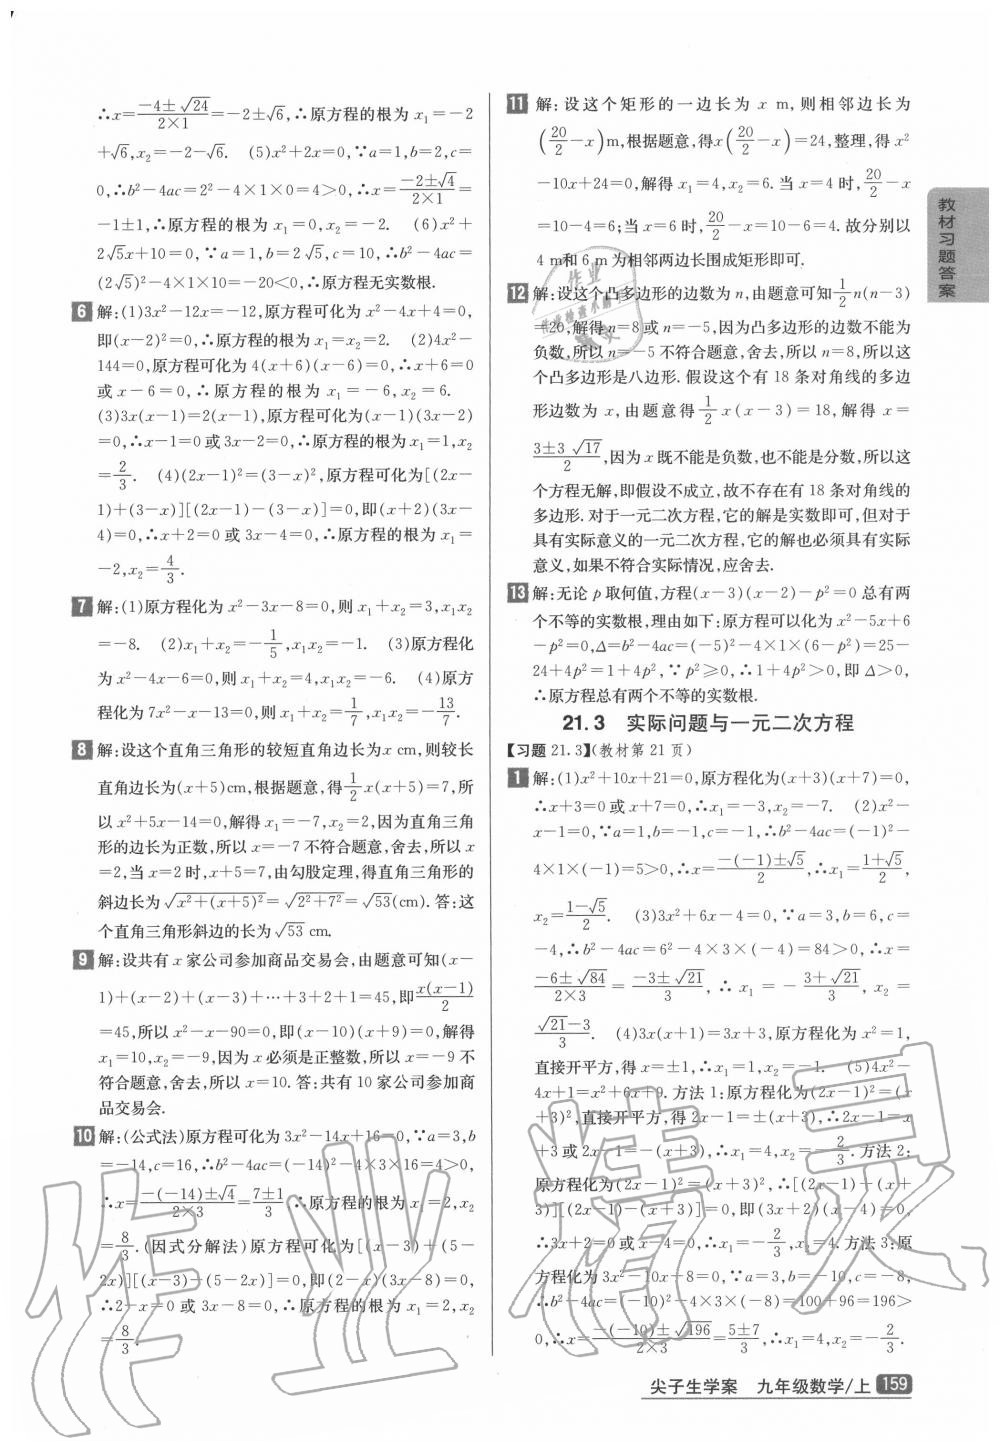 ∴x=(-4±√24)/(2×1)=-2±√6,∴原方程的根为 x₁=-2
+√6,x₂=-2-√6. (5)x²+2x=0,∵a=1,b=2,c=
0,∴b²-4ac=2²-4×1×0=4>0,∴x=(-2±√4)/(2×1)=
-1±1,∴原方程的根为 x₁=0,x₂=-2. (6)x²+
2√5x+10=0,∵a=1,b=2√5,c=10,∴b²-4ac=
(2√5)²-4×1×10=-20<0,∴原方程无实数根.
6 解:(1)3x²-12x=-12,原方程可化为 x²-4x+4=0,
即(x-2)²=0,∴原方程的根为 x₁=x₂=2. (2)4x²-
144=0,原方程可化为 4(x+6)(x-6)=0,∴x+6=0
或 x-6=0,∴原方程的根为 x₁=-6,x₂=6.
(3)3x(x-1)=2(x-1),原方程可化为(x-1)(3x-2)
=0,∴x-1=0 或 3x-2=0,∴原方程的根为 x₁=1,x₂
=2/3. (4)(2x-1)²=(3-x)²,原方程可化为[(2x-
1)+(3-x)][(2x-1)-(3-x)]=0,即(x+2)(3x-
4)=0,∴x+2=0 或 3x-4=0,∴原方程的根为 x₁=
-2,x₂=4/3.
7 解:(1)原方程化为 x²-3x-8=0,则 x₁+x₂=3,x₁x₂
=-8. (2)x₁+x₂=-1/5,x₁x₂=-1. (3)原方程化
为 x²-4x-6=0,则 x₁+x₂=4,x₁x₂=-6. (4)原方
程化为 7x²-x-13=0,则 x₁+x₂=1/7,x₁x₂=-13/7.
8 解:设这个直角三角形的较短直角边长为 x cm,则较长
直角边长为(x+5)cm,根据题意,得1/2x(x+5)=7,所
以 x²+5x-14=0,解得 x₁=-7,x₂=2,因为直角三角
形的边长为正数,所以 x=-7 不符合题意,舍去,所以 x
=2,当 x=2 时,x+5=7,由勾股定理,得直角三角形的
斜边长为√(x²+(x+5)²)=√(2²+7²)=√53(cm).答:这
个直角三角形斜边的长为√53 cm.
9 解:设共有 x 家公司参加商品交易会,由题意可知(x-
1)+(x-2)+(x-3)+…+3+2+1=45,即x(x-1)/2
=45,所以 x²-x-90=0,即(x-10)(x+9)=0,解得
x₁=10,x₂=-9,因为 x 必须是正整数,所以 x=-9 不
符合题意,舍去,所以 x=10.答:共有 10 家公司参加商
品交易会.
10 解:(公式法)原方程可化为 3x²-14x+16=0,∵a=3,b
=-14,c=16,∴b²-4ac=(-14)²-4×3×16=4>0,
∴x=(-(-14)±√4)/(2×3)=(7±1)/3,∴原方程的根为 x₁=2,x₂
=8/3.(因式分解法)原方程可化为[(x-3)+(5-
2x)][(x-3)-(5-2x)]=0,即(2-x)(3x-8)=0,
∴2-x=0 或 3x-8=0,∴原方程的根为 x₁=2,x₂
=8/3.
11 解:设这个矩形的一边长为 x m,则相邻边长为
(20/2-x)m,根据题意,得x(20/2-x)=24,整理,得 x²
-10x+24=0,解得 x₁=4,x₂=6.当 x=4 时,20/2-x
=10-4=6;当 x=6 时,20/2-x=10-6=4.故分别以
4 m和 6 m 为相邻两边长围成矩形即可.
12 解:设这个凸多边形的边数为 n,由题意可知1/2n(n-3)
=20,解得 n=8 或 n=-5,因为凸多边形的边数不能为
负数,所以 n=-5 不符合题意,舍去,所以 n=8,所以这
个凸多边形是八边形.假设这个有 18 条对角线的多边
形边数为 x,由题意得1/2x(x-3)=18,解得 x=
(3±3√17)/2,因为 x 既不能是负数,也不能是分数,所以这
个方程无解,即假设不成立,故不存在有 18 条对角线的
多边形.对于一元二次方程,它的解是实数即可,但对于
具有实际意义的一元二次方程,它的解也必须具有实际
意义,如果不符合实际情况,应舍去.
13 解:无论 p 取何值,方程(x-3)(x-2)-p²=0 总有两
个不等的实数根,理由如下:原方程可以化为 x²-5x+6
-p²=0,Δ=b²-4ac=(-5)²-4×1×(6-p²)=25-
24+4p²=1+4p²,∵p²≥0,∴1+4p²>0,即 Δ>0,
∴原方程总有两个不等的实数根.
21.3 实际问题与一元二次方程
【习题 21.3】(教材第 21 页)
1 解:(1)x²+10x+21=0,原方程化为(x+3)(x+7)=0,
∴x+3=0 或 x+7=0,∴x₁=-3,x₂=-7. (2)x²-
x-1=0,∵a=1,b=-1,c=-1,∴b²-4ac=(-1)²-
4×1×(-1)=5>0,∴x=(-(-1)±√5)/2,∴x₁=(1+√5)/2,
x₂=(1-√5)/2. (3)3x²+6x-4=0,∵a=3,b=6,c=
-4,∴b²-4ac=6²-4×3×(-4)=84>0,∴x=
(-6±√84)/(2×3)=(-3±√21)/3,∴x₁=-(3+√21)/3,x₂=
(√21-3)/3. (4)3x(x+1)=3x+3,原方程化为 x²=1,
直接开平方,得 x=±1,∴x₁=1,x₂=-1. (5)4x²-
4x+1=x²+6x+9.方法 1:原方程化为(2x-1)²=(x
+3)²,直接开平方,得 2x-1=±(x+3),∴2x-1=x
+3或 2x-1=-(x+3),∴x₁=4,x₂=-2/3.方法 2:
原方程化为(2x-1)²=(x+3)²,∴[(2x-1)+(x+
3)][(2x-1)-(x+3)]=0,即(3x+2)(x-4)=0,
∴3x+2=0 或 x-4=0,∴x₁=-2/3,x₂=4.方法 3:原
方程化为 3x²-10x-8=0,∵a=3,b=-10,c=-8,
∴b²-4ac=(-10)²-4×3×(-8)=100+96=196>
0,∴x=(-(-10)±√196)/(2×3)=(5±7)/3,∴x₁=4,x₂=-2/3.
教材习题答案
尖子生学案 九年级数学/上 159
作业精灵